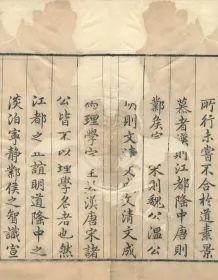 所行未嘗不合於道盡景
慕者漢則江都隆中唐則
鄴侯宋則魏公溫公
則文文清文成
理學漢唐宋諸
公皆不以理學名者也然
江都之正誼明道隆中之
淡泊寧靜鄴侯之智識宣